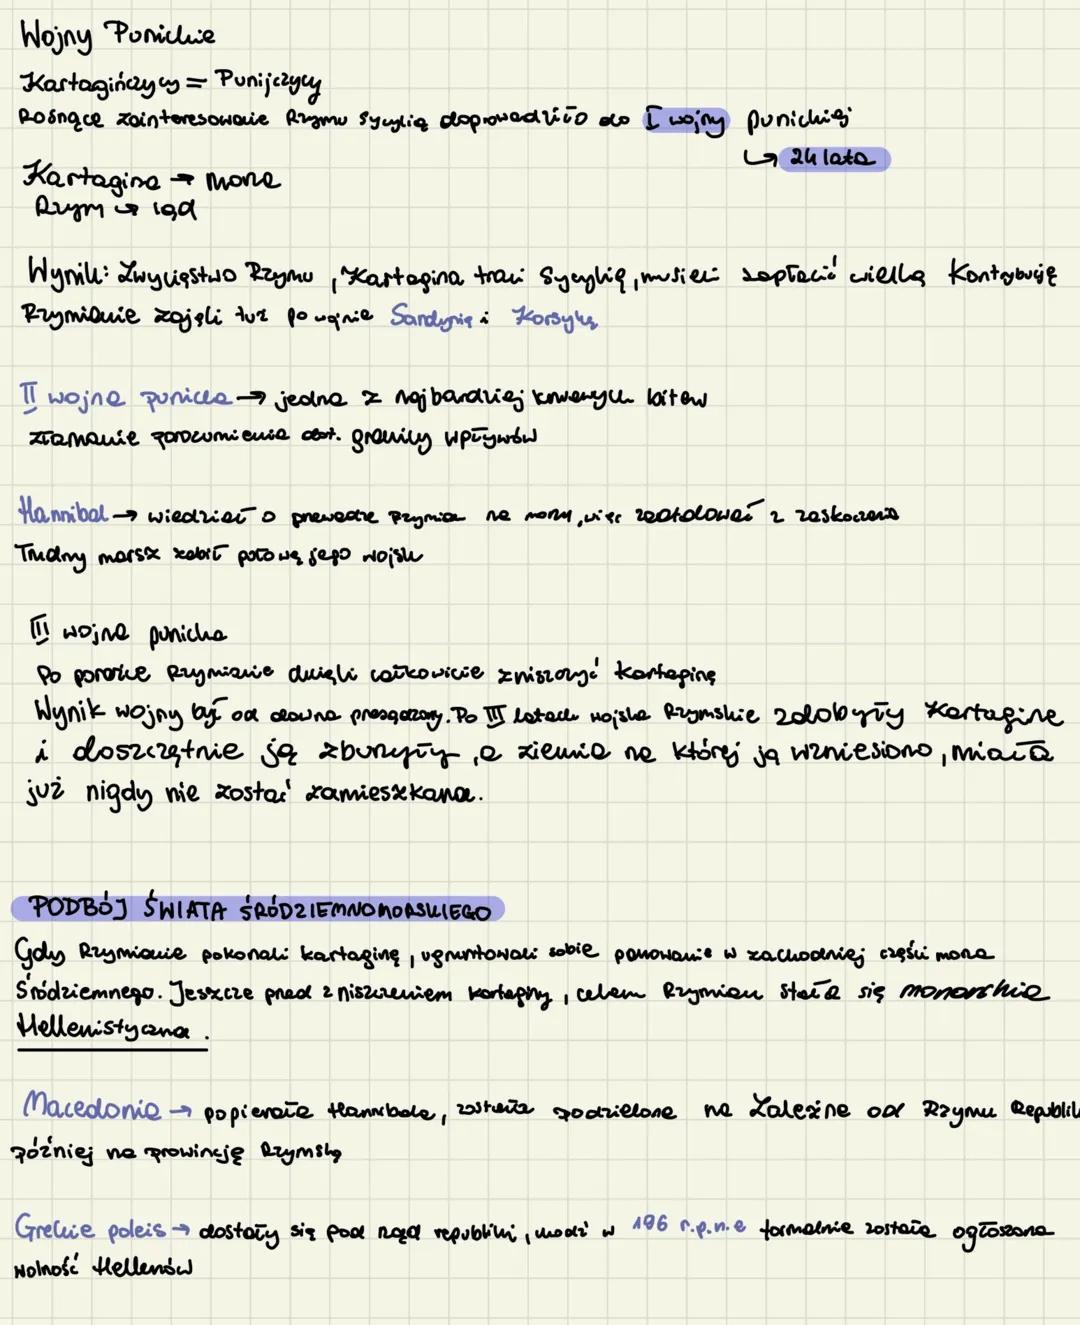 Wojny Punickie
Kartagińczycy = Punijczycy
Rosnące zainteresowanie Rzymu Sycylią doprowadziło do I wojny punickiej
↳ 24 lata
Kartagina → morze
Rzym ↳ ląd
Wynik: Zwycięstwo Rzymu, Kartagina traci Sycylię, musieli zapłacić wielką Kontrybucję
Rzymianie zajęli tuż po wojnie Sardynię i Korsykę
II wojna punicka → jedna z najbardziej krwawych bitew
złamanie porozumienia dot. granicy wpływów
Hannibal → wiedział o przewadze Rzymian na morzu, więc zaatakował z zaskoczenia
Trudny marsz zabił połowę jego wojsk
III wojna punicka
Po porażce Rzymianie chcieli całkowicie zniszczyć Kartaginę
Wynik wojny był od dawna przesądzony. Po III latach wojska Rzymskie zdobyły Kartaginę
i doszczętnie ją zburzyły, a ziemia na której ją wzniesiono, miała
już nigdy nie zostać zamieszkana.
PODBÓJ ŚWIATA ŚRÓDZIEMNOMORSKIEGO
Gdy Rzymianie pokonali kartaginę, ugruntowali sobie panowanie w zachodniej części morza
Śródziemnego. Jeszcze przed zniszczeniem kartaginy, celem Rzymian stała się monarchia
Hellenistyczna.
Macedonia → popierała Hannibala, została podzielona na Zależne od Rzymu Republik
później na prowincję Rzymską
Greckie poleis → dostały się pod rząd republiki, chodź w 196 r.p.n.e formalnie została ogłoszona
wolność Hellenów